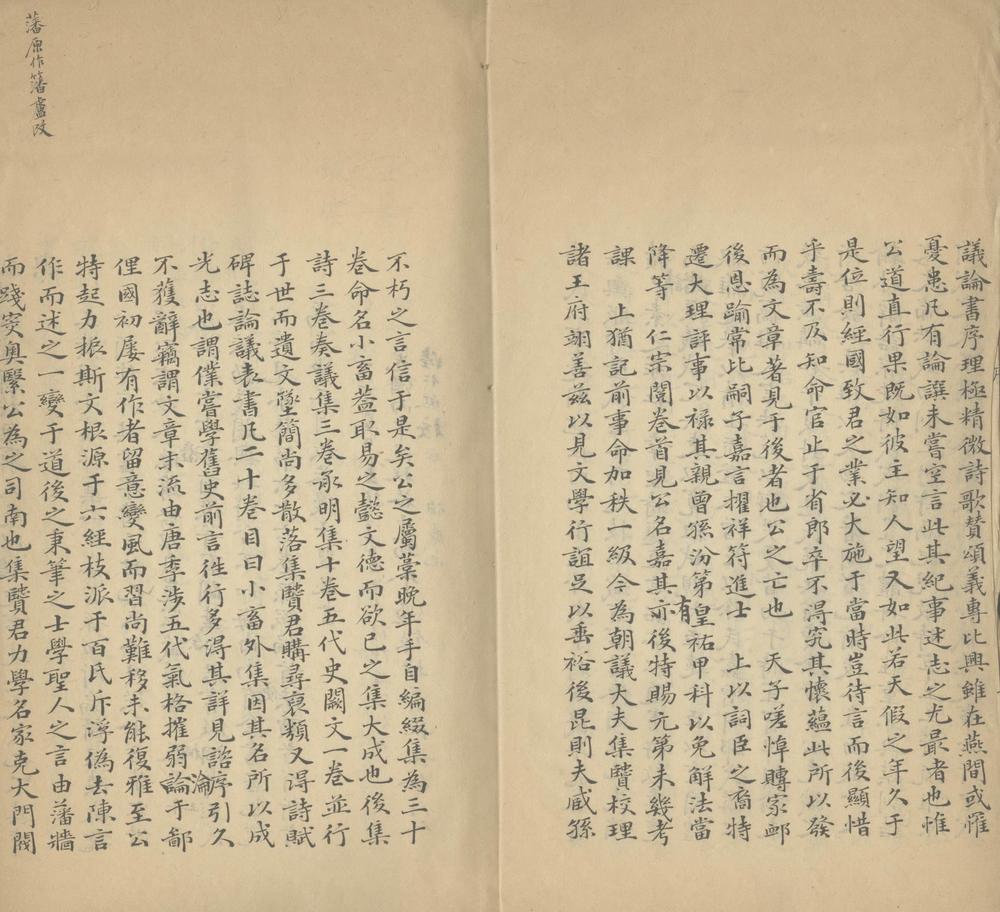 議論書序理極精微詩歌贊頌義專比興雖在燕間或罹
憂患凡有論譔未嘗空言此其紀事述志之尤最者也惟
公道直行果既如彼主知人望又如此若天假之年久于
是位則經國致君之業必大施于當時豈待言而後顯惜
乎壽不及知命官止于省郎卒不得究其懷蘊此所以發
而為文章著見于後者也公之亡也　天子嗟悼賻家卹
後恩踰常比嗣子嘉言擢祥符進士　上以詞臣之裔特
遷大理評事以禄其親曾孫汾第皇祐甲科以免解法當
有
降等　仁宗閱卷首見公名嘉其亦後特賜元第未幾考
課　上猶記前事命加秩一級今為朝議大夫集賢校理
諸王府翊善兹以見文學行誼足以垂裕後昆則夫咸孫
不朽之言信于是矣公之屬藁晚年手自編綴集為三十
卷命名小畜蓋取易之懿文德而欲已之集大成也後集
詩三卷奏議集三卷承明集十卷五代史闕文一卷並行
于世而遺文墜簡尚多散落集賢君購尋裒類又得詩賦
碑誌論議表書凡二十卷目曰小畜外集因其名所以成
光志也謂僕嘗學舊史前言往行多得其詳見諮序引久
淪
不獲辭竊謂文章末流由唐季涉五代氣格摧弱論于鄙
俚國初屡有作者留意變風而習尚難移未能復雅至公
特起力振斯文根源于六經枝派于百氏斥浮偽去陳言
作而述之一變于道後之秉筆之士學聖人之言由藩牆
而踐突奥緊公為之司南也集賢君力學名家克大門閥
藩原作籓盧改